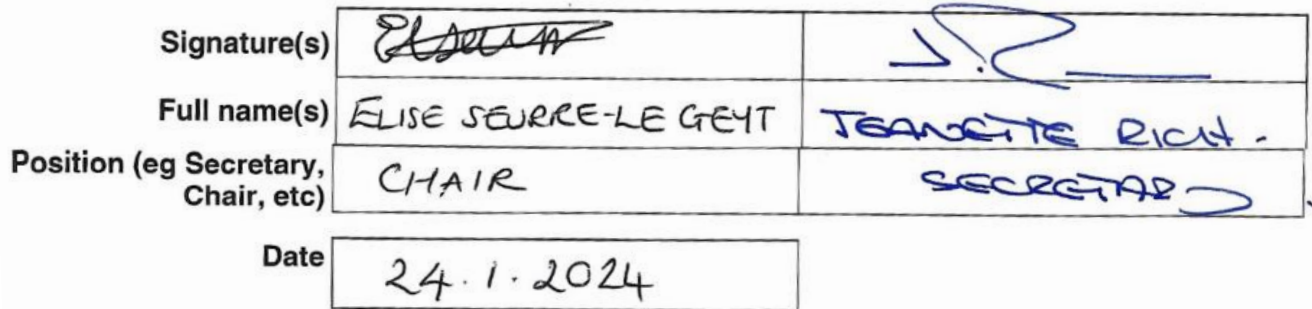 Signature(s)
Full name(s) ELISE SEURRE-LE GEYT JEANETTE RICH.
Position (eg Secretary, Chair, etc) CHAIR SECRETARY.
Date 24.1.2024